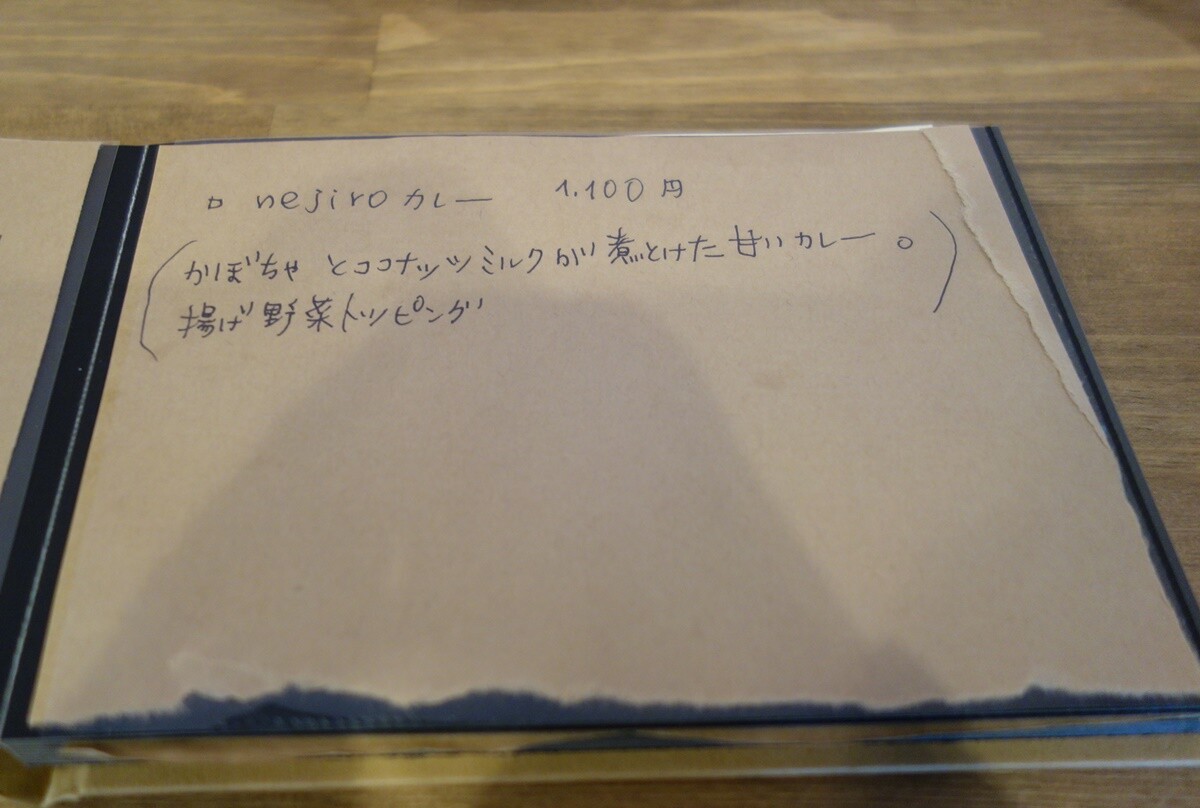 □ nejiro カレー 1.100円
(かぼちゃとココナッツミルクが煮とけた甘いカレー。
揚げ野菜トッピング)